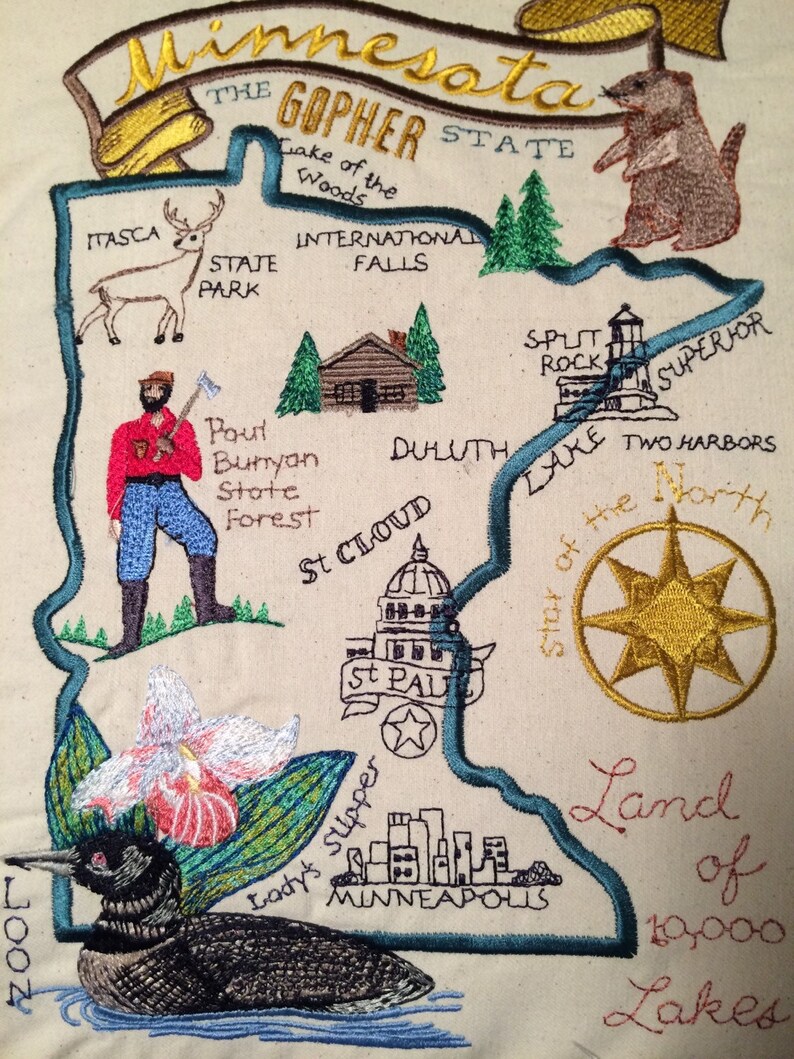 Minnesota
THE GOPHER STATE
Lake of the
Woods
ITASCA
STATE
PARK
INTERNATIONAL
FALLS
SPLIT
ROCK
LAKE SUPERIOR
Paul
Bunyan
State
Forest
DULUTH
TWO HARBORS
St CLOUD
Star of the North
St PAUL
Lady's Slipper
MINNEAPOLIS
LOON
Land
of
10,000
Lakes